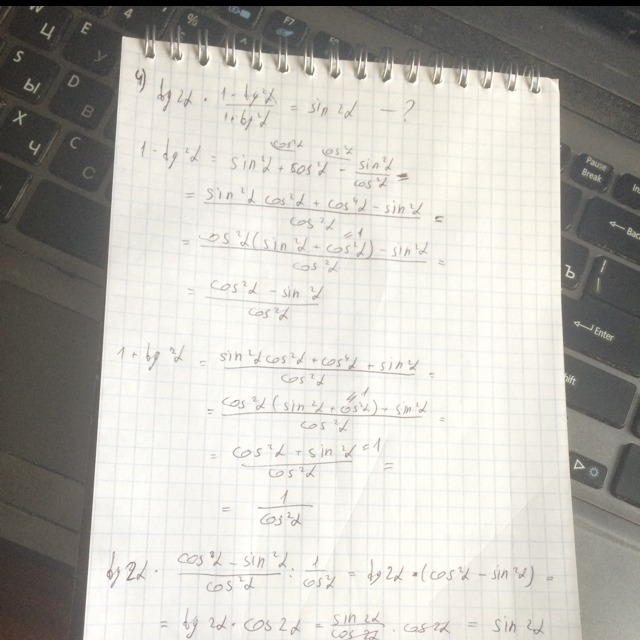 Ц
Ы
Ч
Х
Ъ
Pause Break
Enter
4) tg 2α · (1 - tg²α)/(1 + tg²α) = sin 2α — ?
1 - tg²α = sin²α + cos²α - sin²α/cos²α =
= (sin²α cos²α + cos⁴α - sin²α)/cos²α =
= (cos²α (sin²α + cos²α) - sin²α)/cos²α =
= (cos²α - sin²α)/cos²α
1 + tg²α = (sin²α cos²α + cos⁴α + sin²α)/cos²α =
= (cos²α (sin²α + cos²α) + sin²α)/cos²α =
= (cos²α + sin²α)/cos²α =
= 1/cos²α
tg 2α · (cos²α - sin²α)/cos²α : 1/cos²α = tg 2α · (cos²α - sin²α) =
= tg 2α · cos 2α = sin 2α/cos 2α · cos 2α = sin 2α